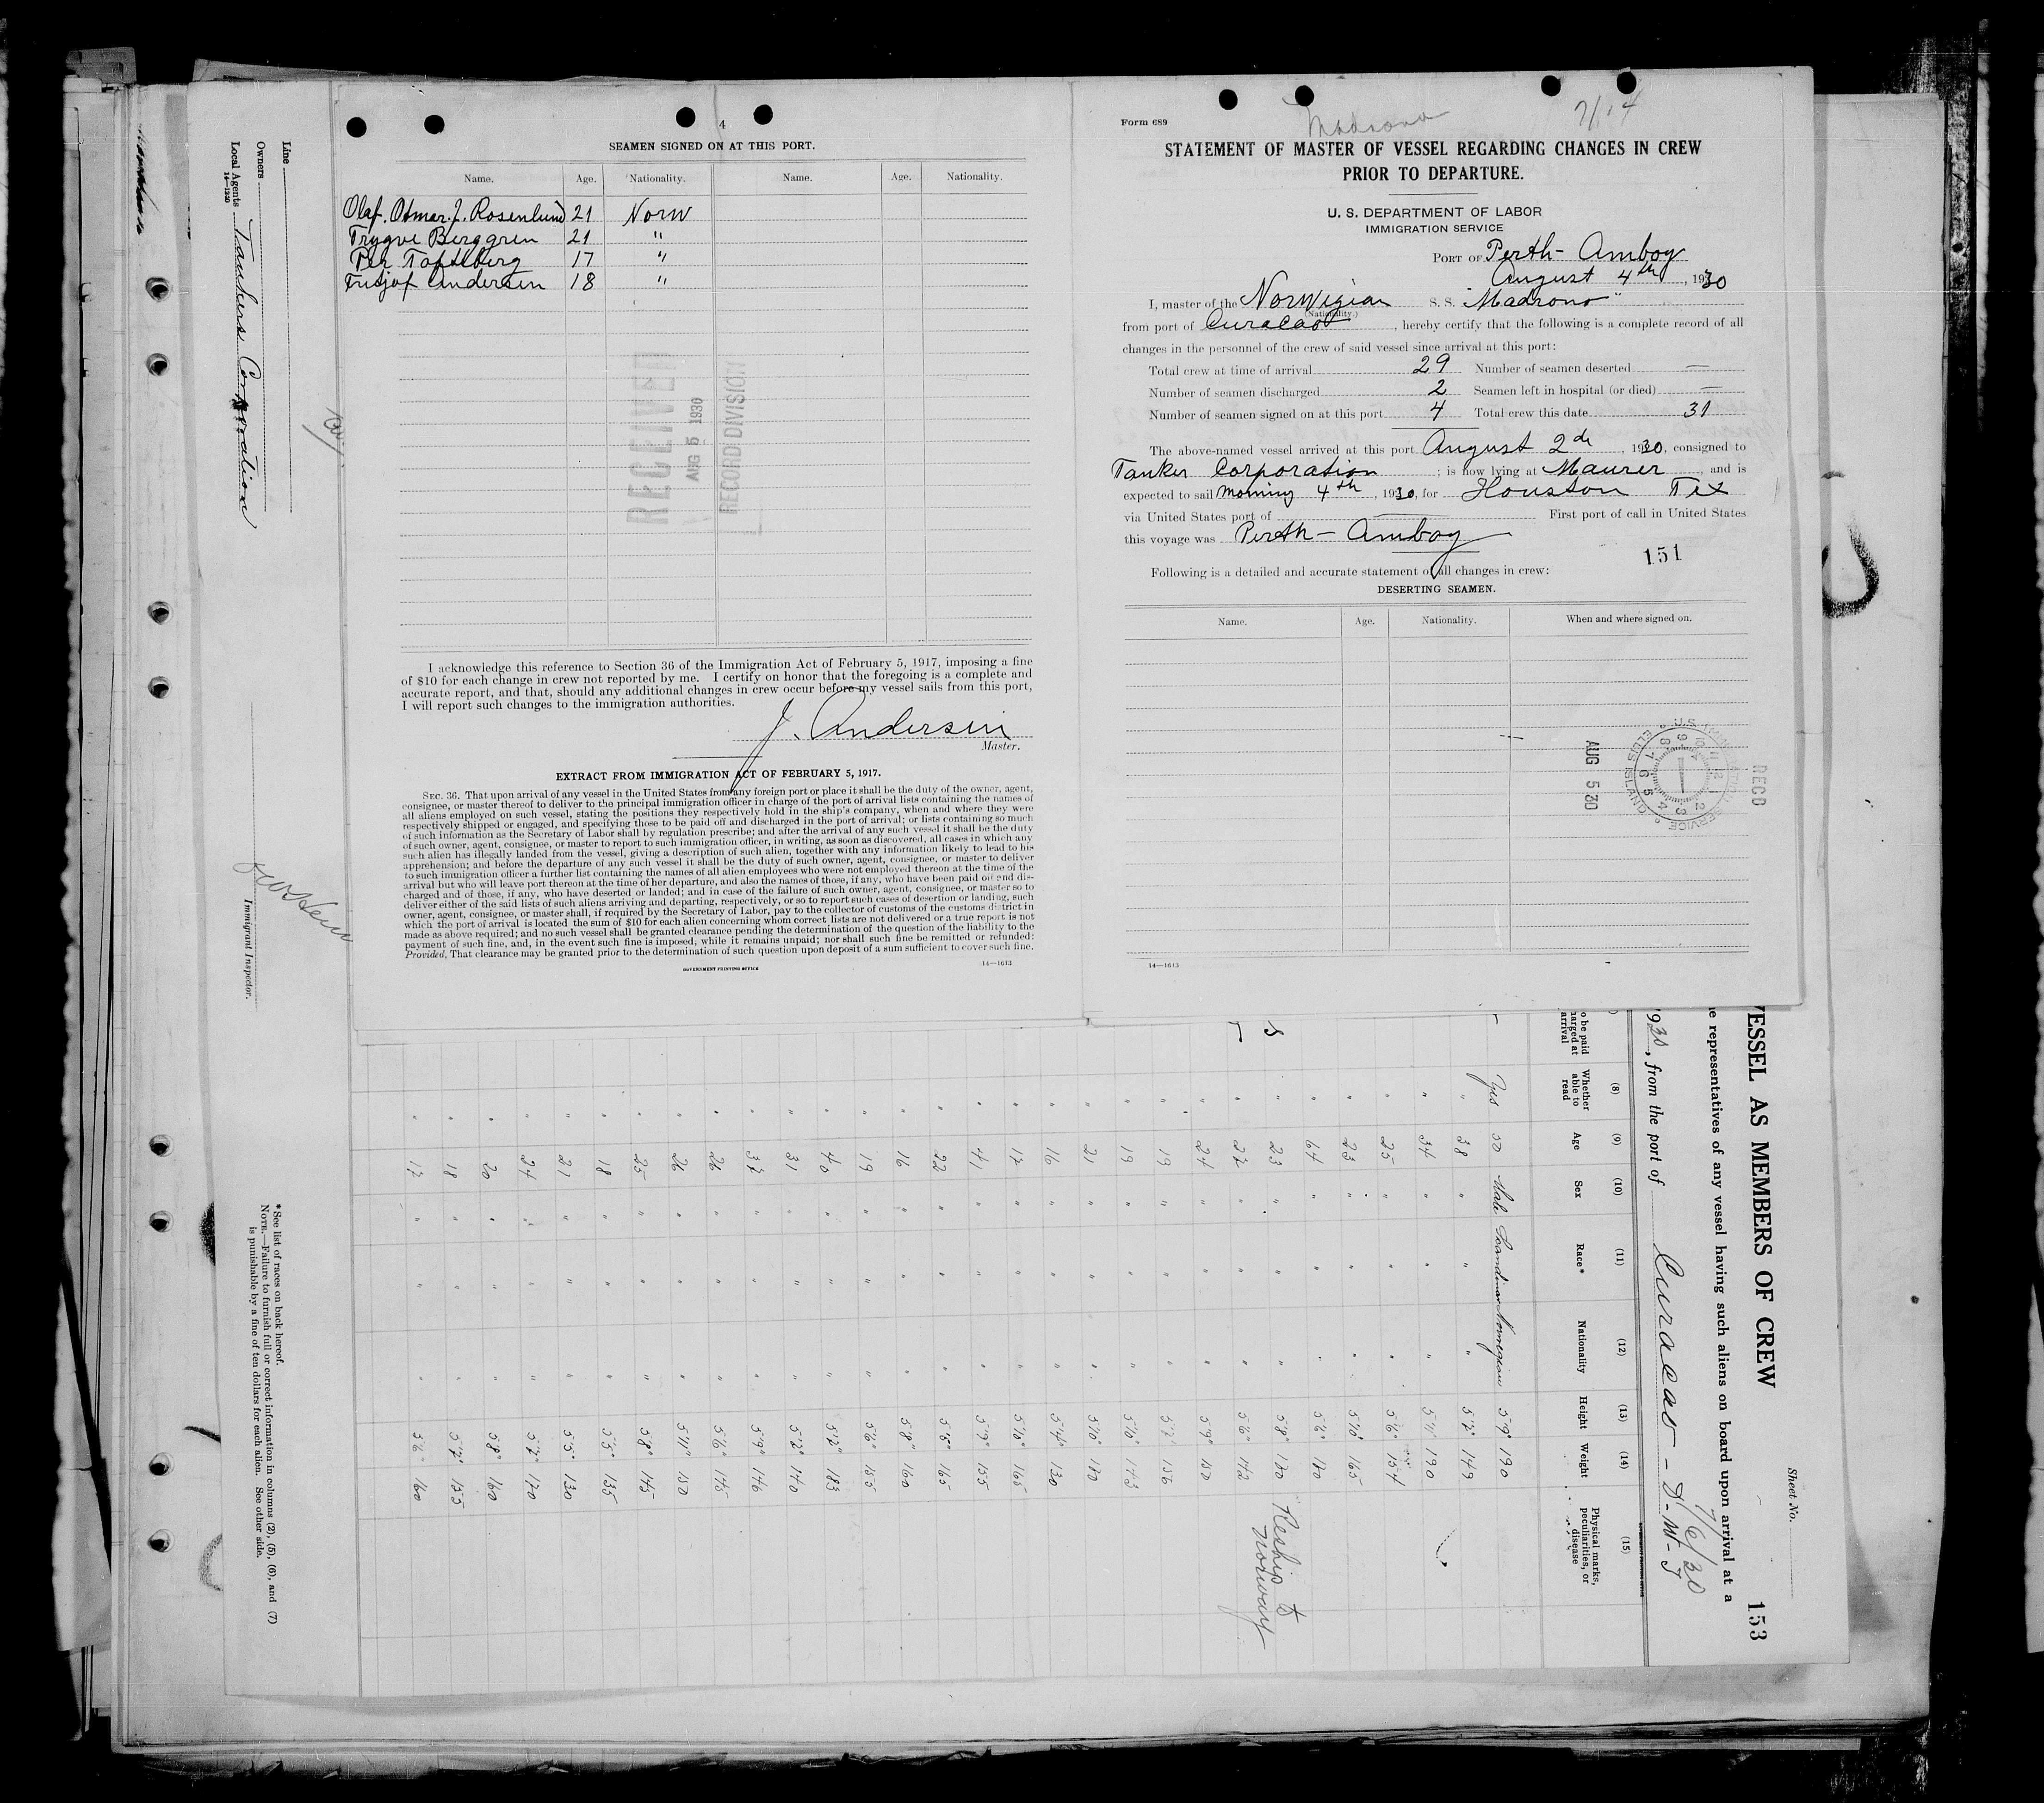 4
SEAMEN SIGNED ON AT THIS PORT.
Name. Age. Nationality. Name. Age. Nationality.
Olaf. Otmar. J. Rosenlund 21 Norw
Trygve Berggren 21 "
Per Tofteberg 17 "
Fridjof Andersen 18 "
RECEIVED
AUG 5 1930
RECORD DIVISION
I acknowledge this reference to Section 36 of the Immigration Act of February 5, 1917, imposing a fine
of $10 for each change in crew not reported by me. I certify on honor that the foregoing is a complete and
accurate report, and that, should any additional changes in crew occur before my vessel sails from this port,
I will report such changes to the immigration authorities.
J. Andersen
Master.
EXTRACT FROM IMMIGRATION ACT OF FEBRUARY 5, 1917.
SEC. 36. That upon arrival of any vessel in the United States from any foreign port or place it shall be the duty of the owner, agent,
consignee, or master thereof to deliver to the principal immigration officer in charge of the port of arrival lists containing the names of
all aliens employed on such vessel, stating the positions they respectively hold in the ship's company, when and where they were
respectively shipped or engaged, and specifying those to be paid off and discharged in the port of arrival; or lists containing so much
of such information as the Secretary of Labor shall by regulation prescribe; and after the arrival of any such vessel it shall be the duty
of such owner, agent, consignee, or master to report to such immigration officer, in writing, as soon as discovered, all cases in which any
such alien has illegally landed from the vessel, giving a description of such alien, together with any information likely to lead to his
apprehension; and before the departure of any such vessel it shall be the duty of such owner, agent, consignee, or master to deliver
to such immigration officer a further list containing the names of all alien employees who were not employed thereon at the time of the
arrival but who will leave port thereon at the time of her departure, and also the names of those, if any, who have been paid off and dis-
charged and of those, if any, who have deserted or landed; and in case of the failure of such owner, agent, consignee, or master so to
deliver either of the said lists of such aliens arriving and departing, respectively, or so to report such cases of desertion or landing, such
owner, agent, consignee, or master shall, if required by the Secretary of Labor, pay to the collector of customs of the customs district in
which the port of arrival is located the sum of $10 for each alien concerning whom correct lists are not delivered or a true report is not
made as above required; and no such vessel shall be granted clearance pending the determination of the question of the liability to the
payment of such fine, and, in the event such fine is imposed, while it remains unpaid; nor shall such fine be remitted or refunded:
Provided, That clearance may be granted prior to the determination of such question upon deposit of a sum sufficient to cover such fine.
GOVERNMENT PRINTING OFFICE 14—1613
Form 689
Madrono
STATEMENT OF MASTER OF VESSEL REGARDING CHANGES IN CREW
PRIOR TO DEPARTURE.
U. S. DEPARTMENT OF LABOR
IMMIGRATION SERVICE
PORT OF Perth-Amboy
August 4th, 1930
I, master of the Norwegian S. S. "Madrono"
(Nationality.)
from port of Curacao, hereby certify that the following is a complete record of all
changes in the personnel of the crew of said vessel since arrival at this port:
Total crew at time of arrival 29 Number of seamen deserted —
Number of seamen discharged 2 Seamen left in hospital (or died) —
Number of seamen signed on at this port 4 Total crew this date 31
The above-named vessel arrived at this port August 2de, 1930, consigned to
Tanker Corporation; is now lying at Maurer, and is
expected to sail morning 4th, 1930, for Houston Tex
via United States port of — First port of call in United States
this voyage was Perth-Amboy
151
Following is a detailed and accurate statement of all changes in crew:
DESERTING SEAMEN.
Name. Age. Nationality. When and where signed on.
RECD
U.S. IMMIGRATION SERVICE
ELLIS ISLAND
AUG 5 30
14—1613
Line
Owners
Local Agents Tankers Corporation
14—1240
Immigrant Inspector.
* See list of races on back hereof.
NOTE.—Failure to furnish full or correct information in columns (2), (5), (6), and (7)
is punishable by a fine of ten dollars for each alien. See other side.
Sheet No.
153
VESSEL AS MEMBERS OF CREW
e representatives of any vessel having such aliens on board upon arrival at a
1930, from the port of Curacao - D-W-I
7/6/30
(8) (9) (10) (11) (12) (13) (14) (15)
o be paid
harged at
arrival
Whether
able to
read
Age Sex Race* Nationality Height Weight
Physical marks,
peculiarities, or
disease
Yes 50 Male Scandinav Norwegian 5'9" 190
" 38 " " " 5'7" 149
" 34 " " " 5'11" 190
" 25 " " " 5'6" 154
" 23 " " " 5'10" 165
" 64 " " " 5'6" 180
" 23 " " " 5'8" 180 Reship to
" 22 " " " 5'6" 142 Norway
" 24 " " " 5'9" 150
" 19 " " " 5'7" 156
" 19 " " " 5'10" 143
" 21 " " " 5'10" 180
" 16 " " " 5'4" 130
" 17 " " " 5'10" 165
" 41 " " " 5'9" 155
" 22 " " " 5'6" 165
" 16 " " " 5'8" 160
" 19 " " " 5'6" 155
" 40 " " " 5'2" 183
" 31 " " " 5'2" 140
" 32 " " " 5'9" 146
" 26 " " " 5'6" 145
" 26 " " " 5'11" 150
" 25 " " " 5'8" 145
" 18 " " " 5'5" 135
" 21 " " " 5'5" 130
" 24 " " " 5'7" 170
" 20 " " " 5'8" 160
" 18 " " " 5'7" 155
" 17 " " " 5'6" 160